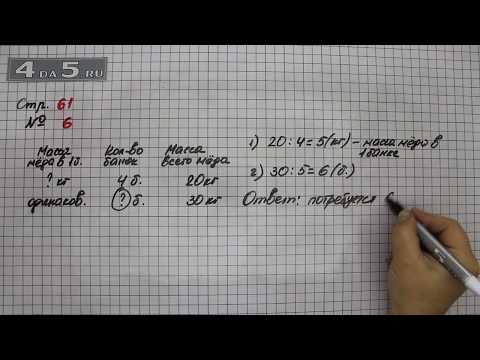 4 DA 5.RU
Стр. 61
№ 6
Масса мёда в 1 б. Кол-во банок Масса всего мёда
? кг 4 б. 20 кг
одинаков. ? б. 30 кг
1) 20 : 4 = 5 (кг) – масса мёда в
1 банке
2) 30 : 5 = 6 (б.)
Ответ: потребуется